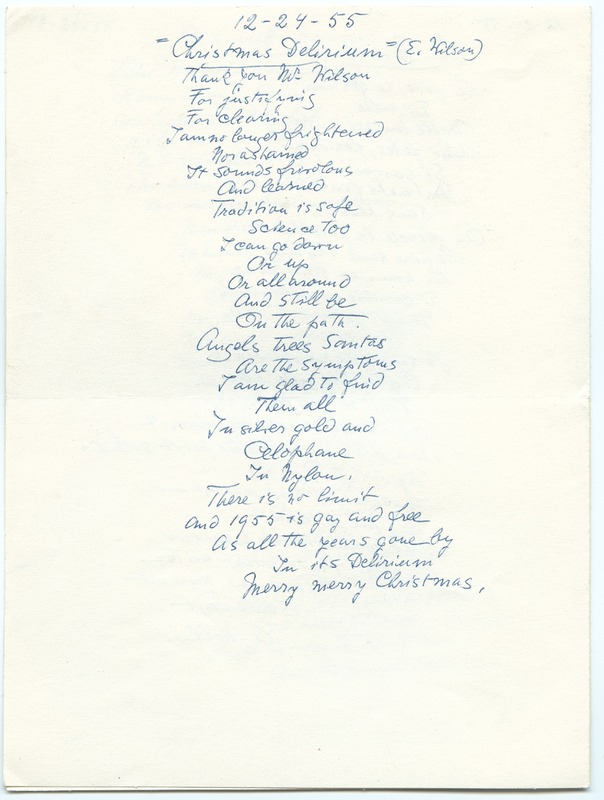 12-24-55
"Christmas Delirium" (E. Wilson)
Thank you Mr Wilson
For justifying
For clearing
I am no longer frightened
Nor ashamed
It sounds frivolous
And learned
Tradition is safe
Science too
I can go down
Or up
Or all around
And still be
On the path.
Angels Trees Santas
Are the symptoms
I am glad to find
Them all
In silver gold and
Celophane
In Nylon.
There is no limit
and 1955 is gay and free
As all the years gone by
In its Delirium
Merry merry Christmas,